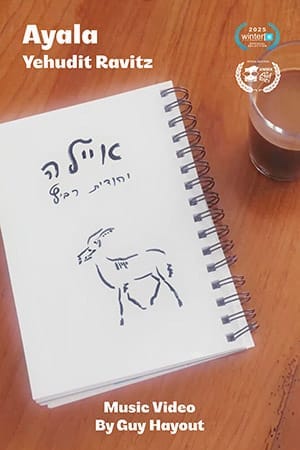 Ayala
Yehudit Ravitz
2025
winter
איילה
יהודית רביץ
Music Video
By Guy Hayout